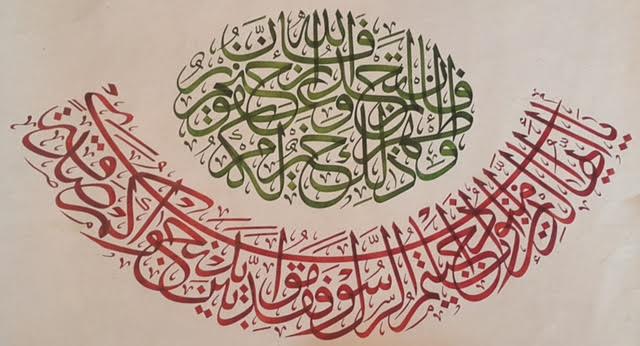 يا أيها الذين آمنوا إذا ناجيتم الرسول فقدموا بين يدي نجواكم صدقة
ذلك خير لكم وأطهر فإن لم تجدوا فإن الله غفور رحيم